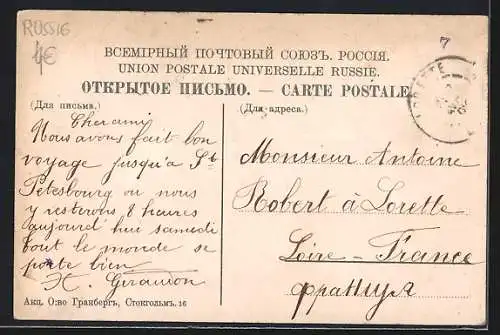 RUSSIE
4€
7
ВСЕМІРНЫЙ ПОЧТОВЫЙ СОЮЗЪ. РОССІЯ.
UNION POSTALE UNIVERSELLE RUSSIE.
ОТКРЫТОЕ ПИСЬМО. — CARTE POSTALE
(Для письма.)
(Для адреса.)
Cher ami
Nous avons fait bon
voyage jusqu'a St
Petesbourg ou nous
y resterons 8 heures
aujourd hui samedi
tout le monde se
porte bien
H. Giraudon
Monsieur Antoine
Robert à Lorette
Loire - France
Франция
Акц. О:во Гранбергъ, Стокгольмъ. 16